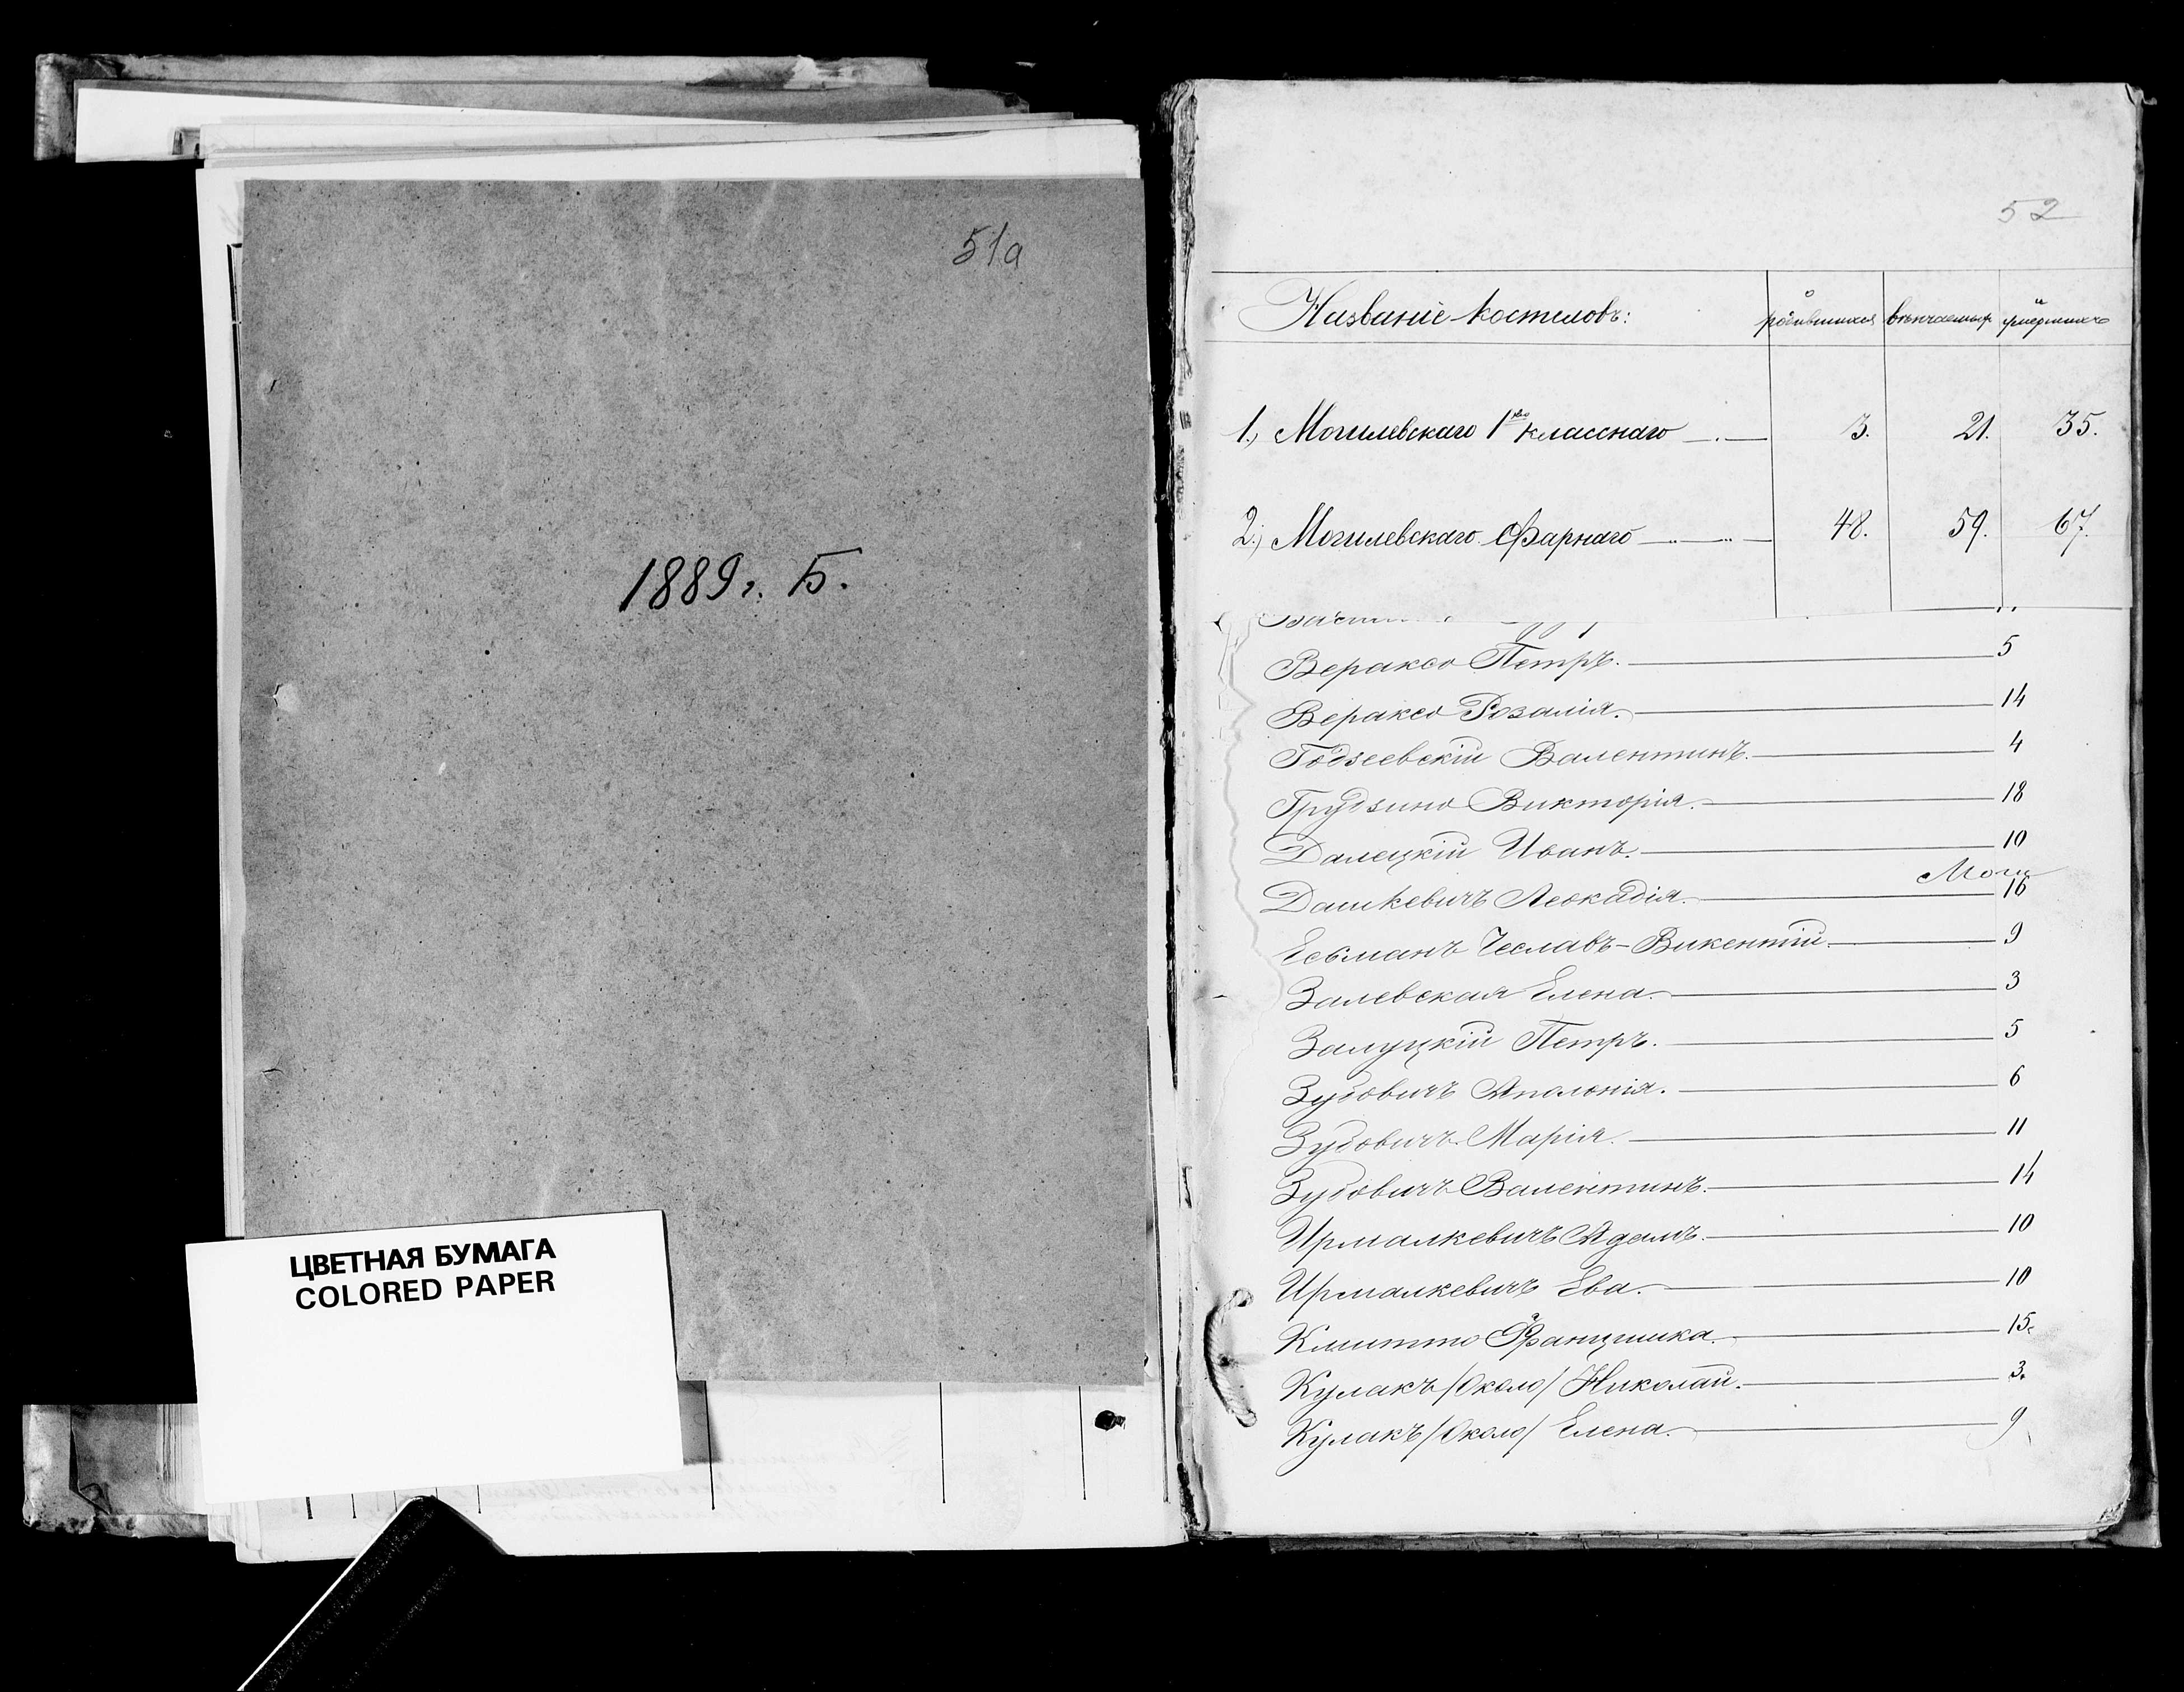 51а
1889 г. Б.
ЦВЕТНАЯ БУМАГА
COLORED PAPER
52
Названіе костеловъ: о родившихся о вѣнчаемыхъ умершихъ
1.) Могилевскаго 1го класснаго 3. 21. 35.
2.) Могилевскаго Фарнаго 48. 59. 67.
Вераксо Петръ. 5
Вераксо Розалія. 14
Годзеевскій Валентинъ. 4
Грудзино Викторія. 18
Далецкій Иванъ. 10
Моги
Дашкевичъ Леокадія. 16
Есьманъ Чеславъ-Викентій. 9
Залевская Елена. 3
Залуцкій Петръ. 5
Зудовичъ Аполонія. 6
Зудовичъ Марія. 11
Зудовичъ Валентинъ. 14
Ирмалкевичъ Адамъ. 10
Ирмалкевичъ Ева. 10
Климто Францишка. 15.
Кулакъ /Около/ Николай. 3.
Кулакъ /Около/ Елена. 9